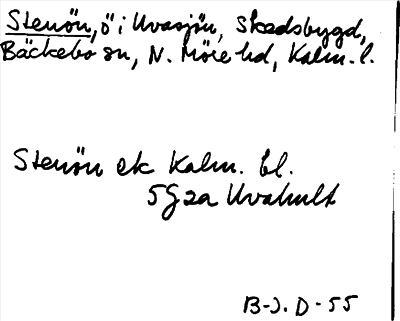 Stenön, ö i Uvasjön, Skedsbygd,
Bäckebo sn, N. Möre hd, Kalm. l.
Stenön ek Kalm. bl.
5G2a Uvahult
B-J. D-55